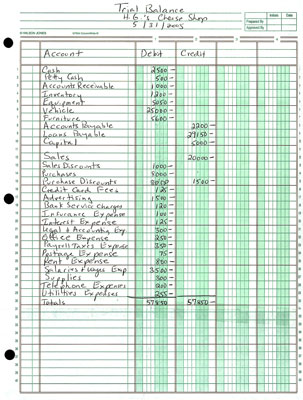 Trial Balance
H.G.'s Cheese Shop
5/31/2005
WILSON JONES
Account Debit Credit
Cash 2500 -
Petty Cash 500 -
Accounts Receivable 1000 -
Inventory 1200 -
Equipment 5050 -
Vehicle 25000 -
Furniture 5600 -
Accounts Payable 2200 -
Loans Payable 29150 -
Capital 5000 -
Sales 20000 -
Sales Discounts 1000 -
Purchases 8000 -
Purchase Discounts 1500 -
Credit Card Fees 125 -
Advertising 1500 -
Bank Service Charges 120 -
Insurance Expense 100 -
Interest Expense 125 -
Legal & Accounting Exp 300 -
Office Expense 250 -
Payroll Taxes Expense 350 -
Postage Expense 75 -
Rent Expense 800 -
Salaries & Wages Exp 3500 -
Supplies 300 -
Telephone Expenses 200 -
Utilities Expenses 255 -
Totals 57850 - 57850 -